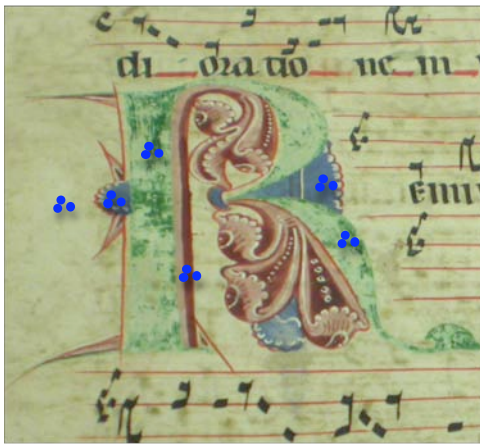 di oratio ne m
Remi